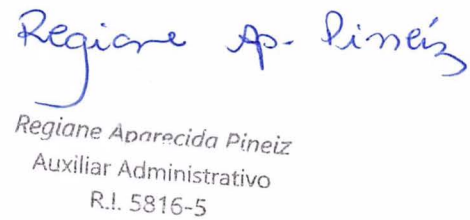 Regiane Ap. Pineiz
Regiane Aparecida Pineiz
Auxiliar Administrativo
R.I. 5816-5